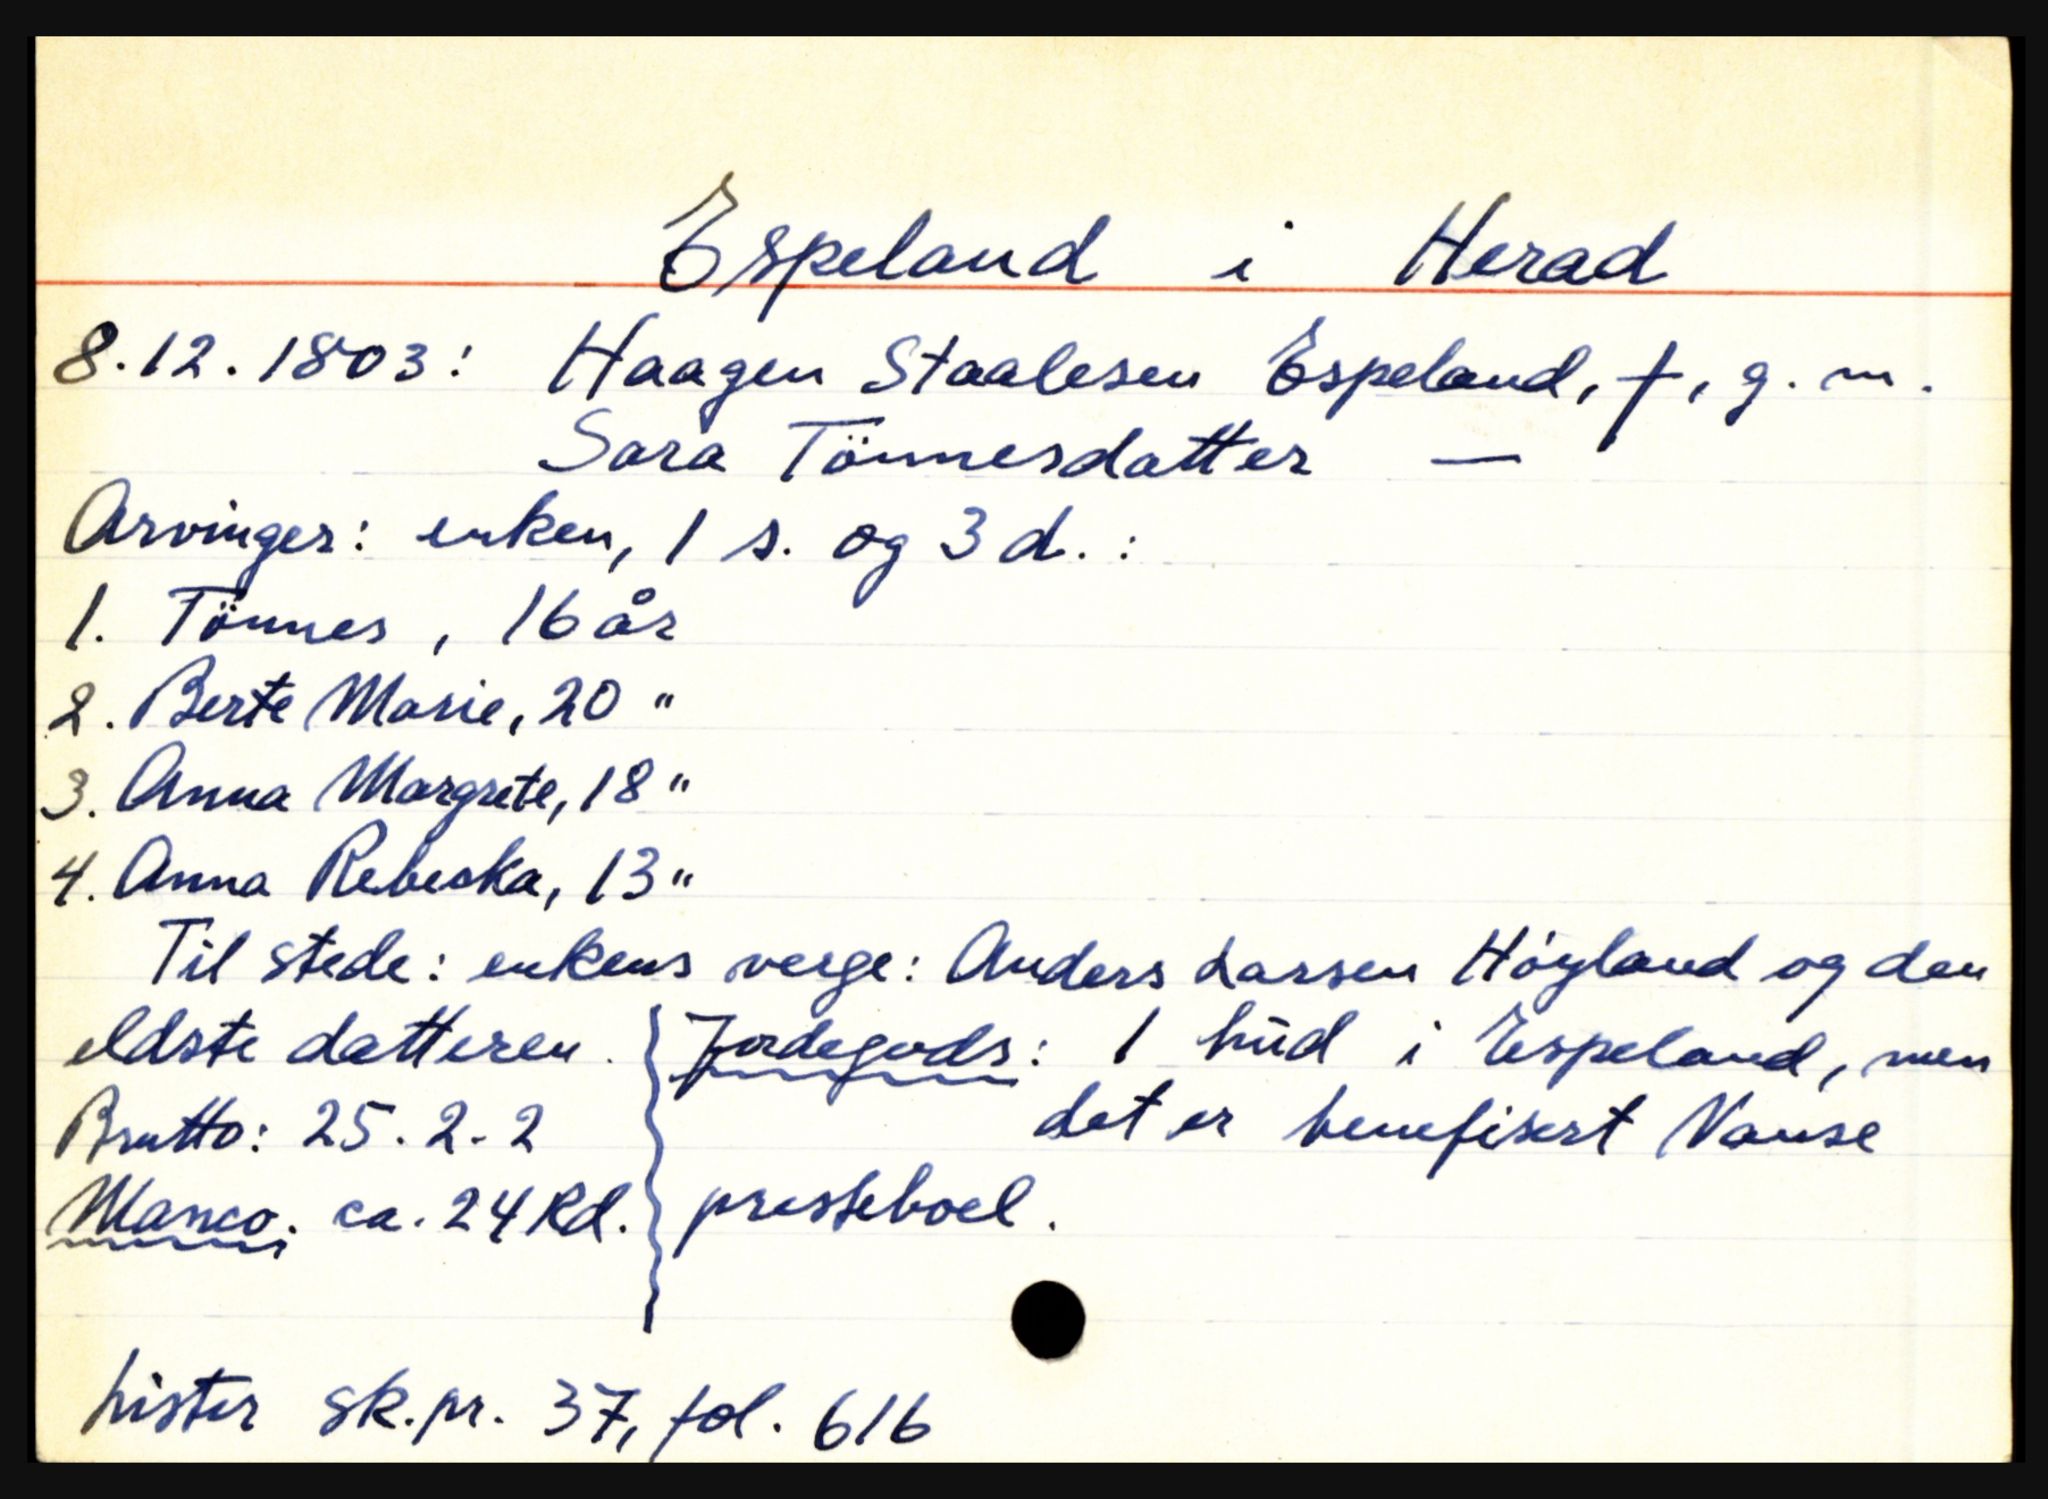 Espeland i Herad
8.12.1803: Haagen Staalesen Espeland, †, g. m.
Sara Tönnesdatter —
Arvinger: enken, 1 s. og 3 d. :
1. Tönnes , 16 år
2. Berte Marie, 20 "
3. Anna Margrete, 18 "
4. Anna Rebecka, 13 "
Til stede: enkens verge: Anders Larsen Höyland og den
eldste datteren.
Brutto: 25. 2. 2
Manco. ca. 24 Rd.
Jordegods: 1 hud i Espeland, men
det er benefisert Vanse
presteboel.
Lister sk.pr. 37, fol. 616